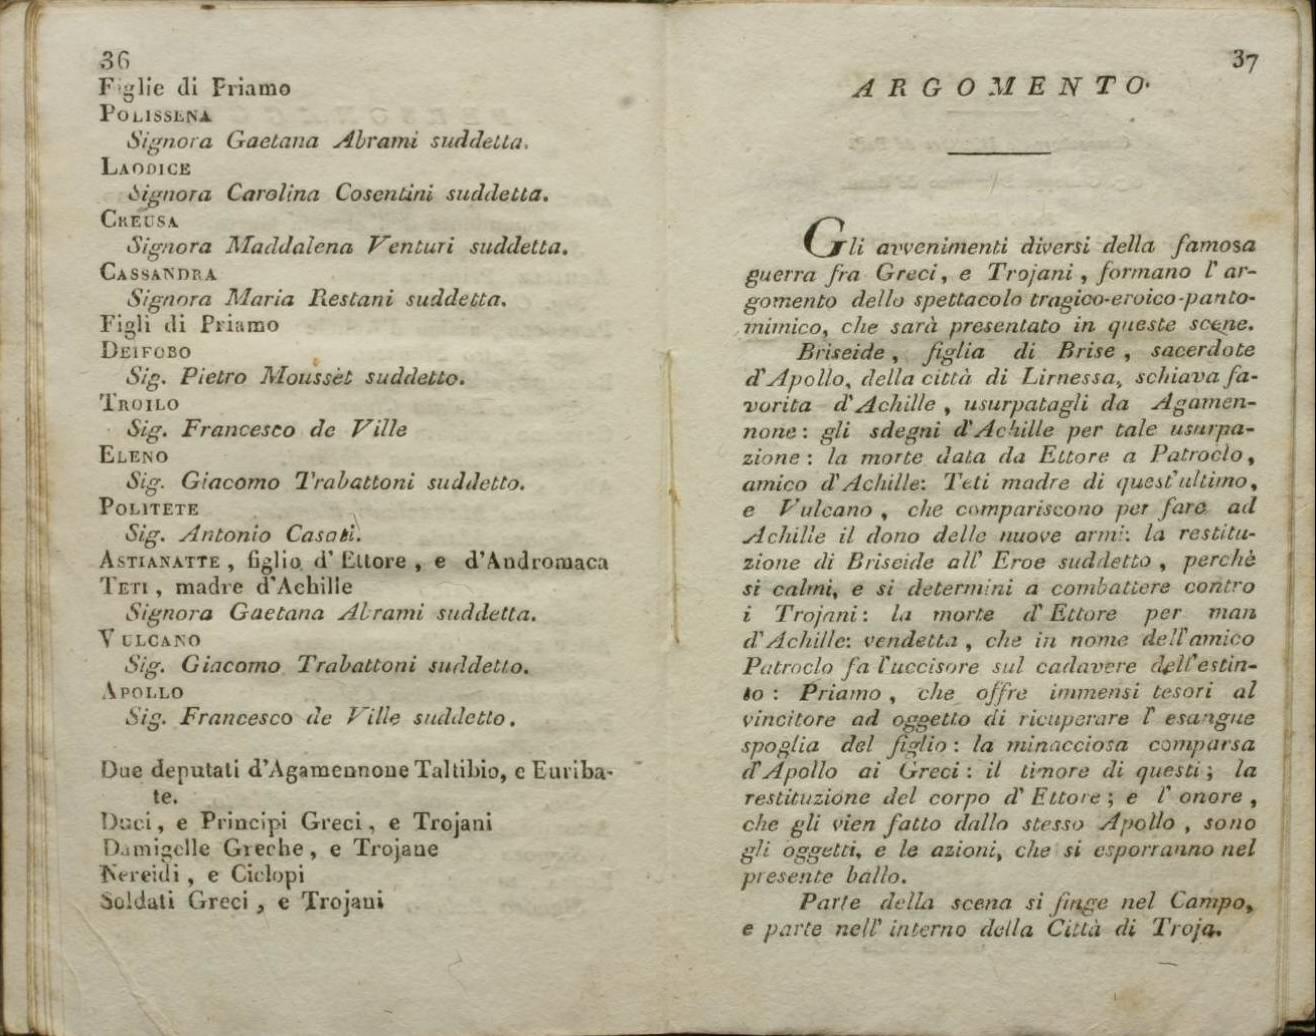 36
Figlie di Priamo
POLISSENA
Signora Gaetana Abrami suddetta.
LAODICE
Signora Carolina Cosentini suddetta.
CREUSA
Signora Maddalena Venturi suddetta.
CASSANDRA
Signora Maria Restani suddetta.
Figli di Priamo
DEIFOBO
Sig. Pietro Moussèt suddetto.
TROILO
Sig. Francesco de Ville
ELENO
Sig. Giacomo Trabattoni suddetto.
POLITETE
Sig. Antonio Casati.
ASTIANATTE, figlio d' Ettore, e d'Andromaca
TETI, madre d'Achille
Signora Gaetana Abrami suddetta.
VULCANO
Sig. Giacomo Trabattoni suddetto.
APOLLO
Sig. Francesco de Ville suddetto.
Due deputati d'Agamennone Taltibio, e Euriba-
te.
Duci, e Principi Greci, e Trojani
Damigelle Greche, e Trojane
Nereidi, e Ciclopi
Soldati Greci, e Trojani
37
ARGOMENTO.
Gli avvenimenti diversi della famosa
guerra fra Greci, e Trojani, formano l' ar-
gomento dello spettacolo tragico-eroico-panto-
mimico, che sarà presentato in queste scene.
Briseide, figlia di Brise, sacerdote
d'Apollo, della città di Lirnessa, schiava fa-
vorita d'Achille, usurpatagli da Agamen-
none: gli sdegni d'Achille per tale usurpa-
zione: la morte data da Ettore a Patroclo,
amico d'Achille: Teti madre di quest'ultimo,
e Vulcano, che compariscono per fare ad
Achille il dono delle nuove armi: la restitu-
zione di Briseide all' Eroe suddetto, perchè
si calmi, e si determini a combattere contro
i Trojani: la morte d' Ettore per man
d'Achille: vendetta, che in nome dell'amico
Patroclo fa l'uccisore sul cadavere dell'estin-
to: Priamo, che offre immensi tesori al
vincitore ad oggetto di ricuperare l' esangue
spoglia del figlio: la minacciosa comparsa
d'Apollo ai Greci: il timore di questi; la
restituzione del corpo d' Ettore; e l' onore,
che gli vien fatto dallo stesso Apollo, sono
gli oggetti, e le azioni, che si esporranno nel
presente ballo.
Parte della scena si finge nel Campo,
e parte nell' interno della Città di Troja.